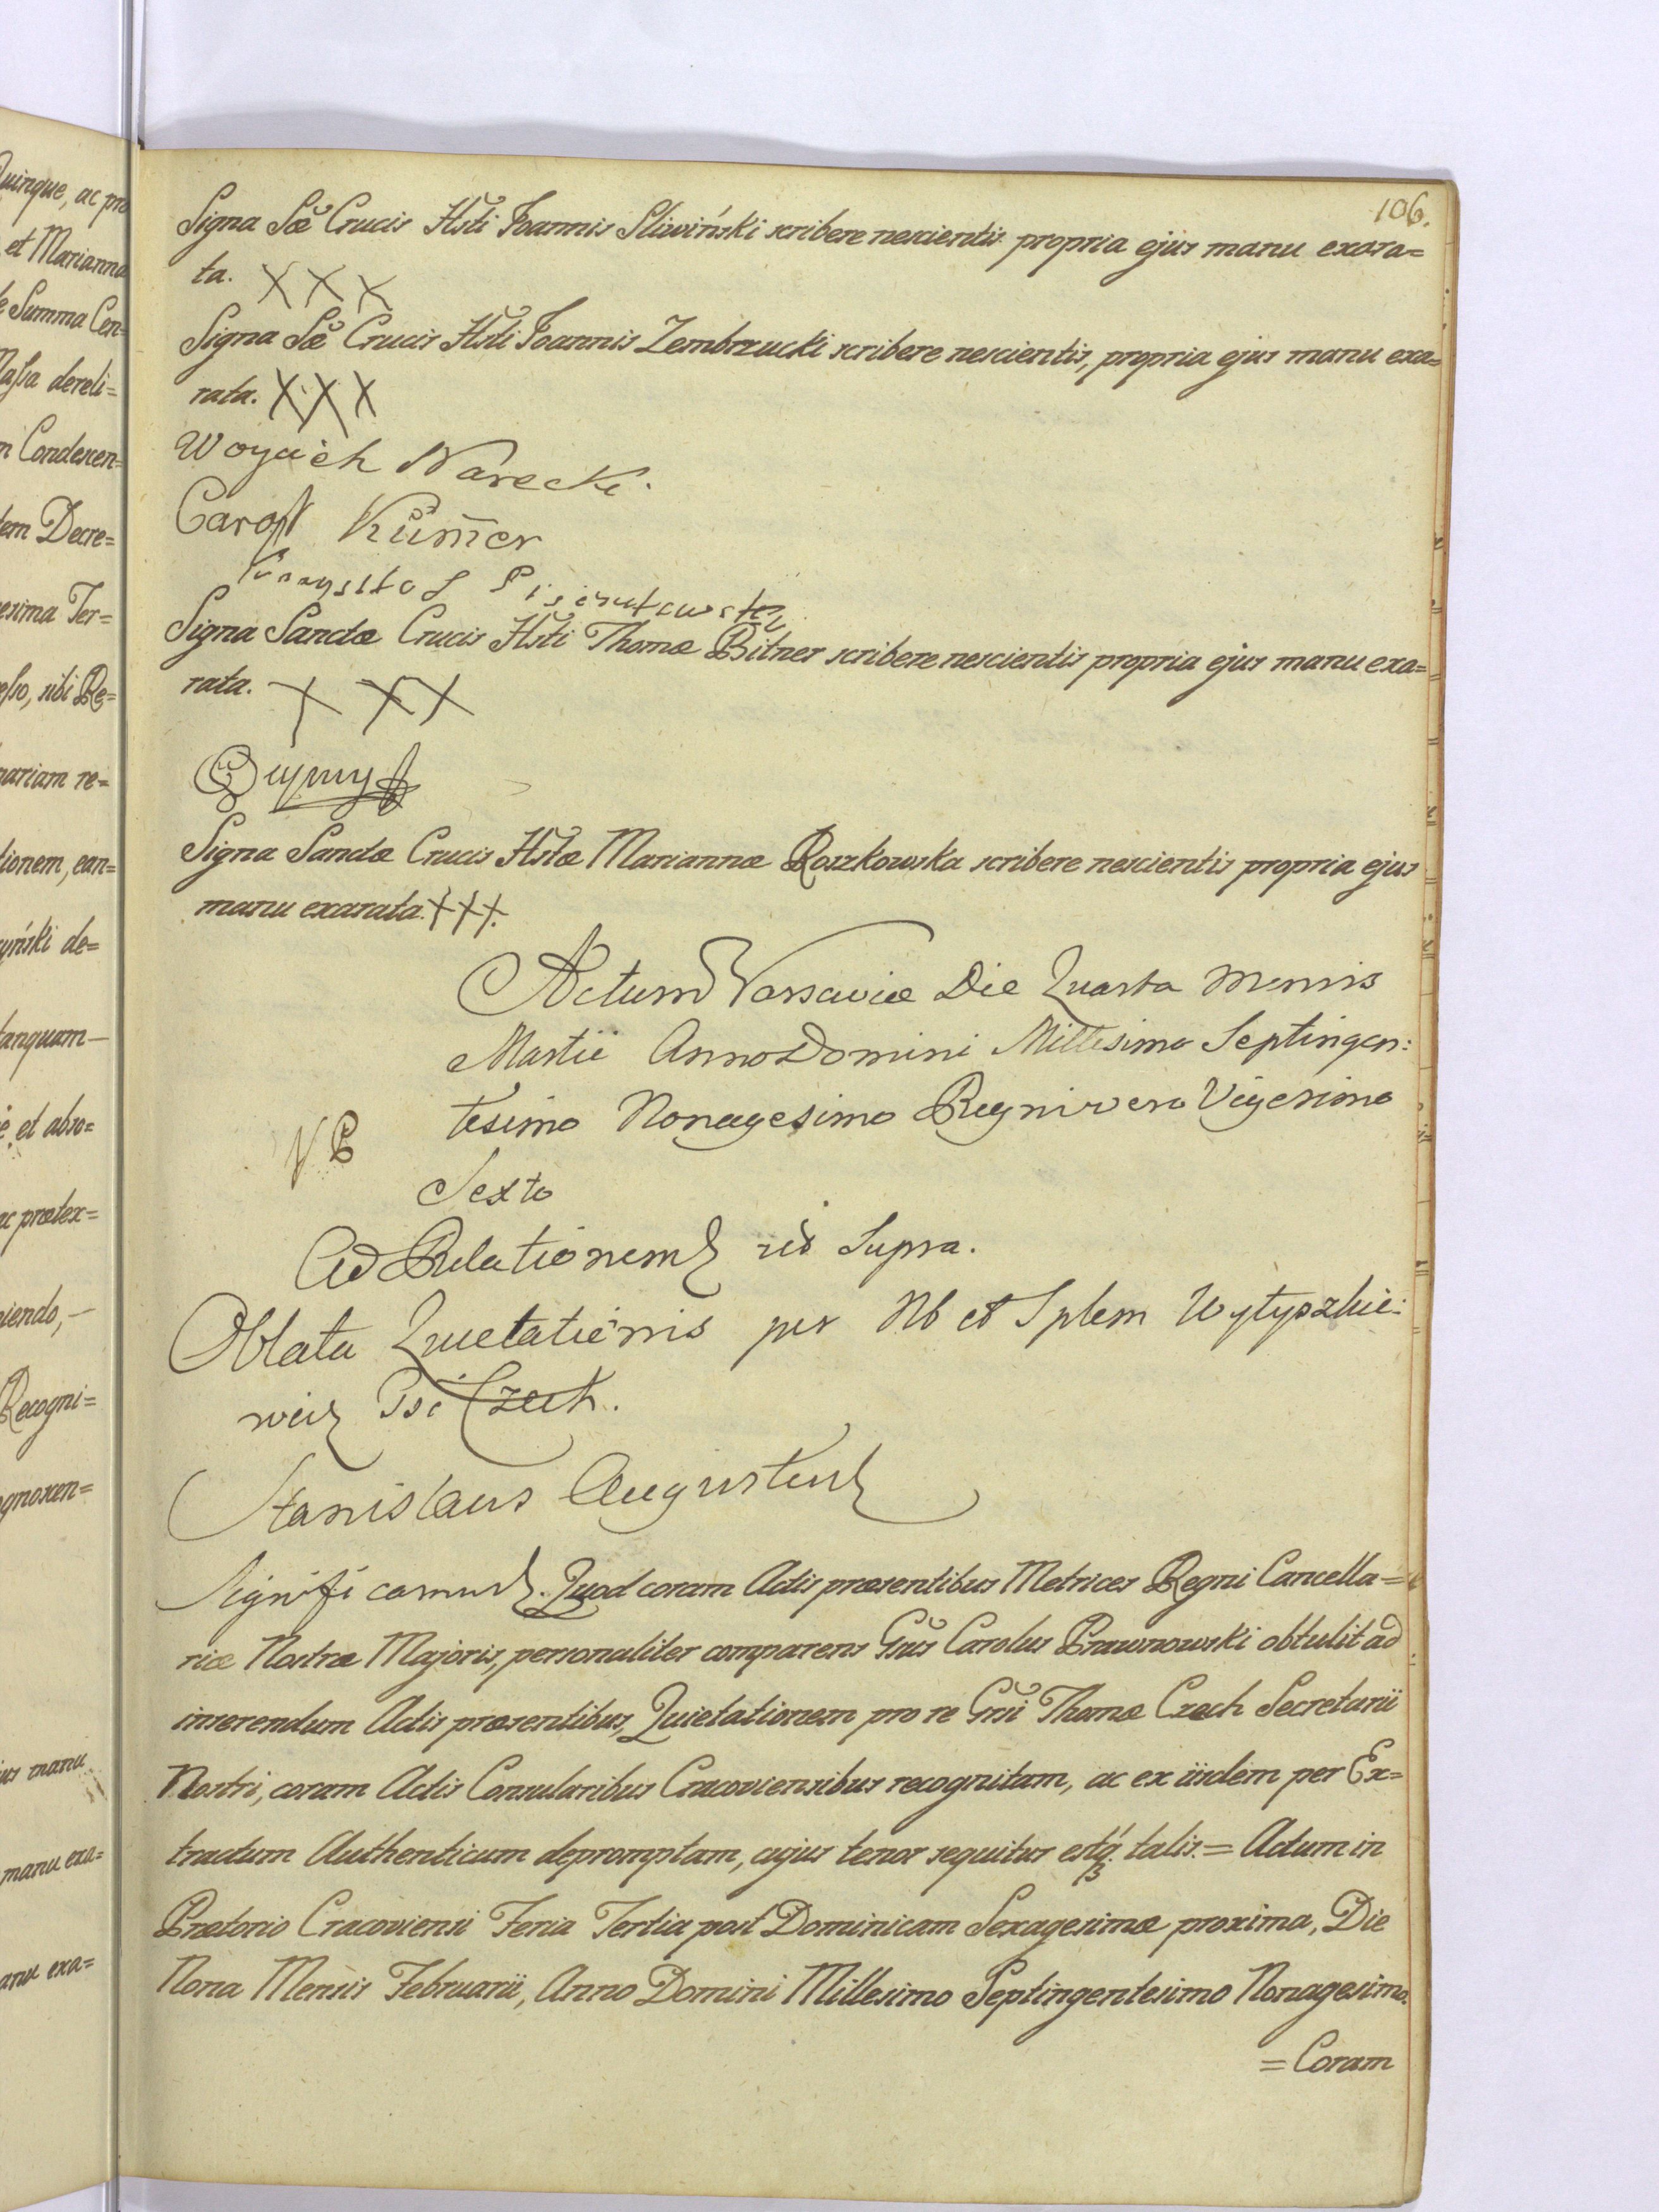 106.
Signa Sæ Crucis Hsti Joannis Sliwiński scribere nescientis propria ejus manu exara=
ta. X X X
Signa Sæ Crucis Hsti Joannis Zembrzucki scribere nescientis, propria ejus manu exa=
rata. X X X
Woyciech Narecki.
Carol Kümer
Signa Sanctæ Crucis Hsti Thomæ Bitner scribere nescientis propria ejus manu exa=
rata. X X X
Signa Sanctæ Crucis Hstæ Mariannæ Roszkowska scribere nescientis propria ejus
manu exarata. XXX.
Actum Varsaviæ Die Quarta Mensis
Martii Anno Domini Millesimo Septingen:
tesimo Nonagesimo Regni vero Vigesimo
Sexto
Ad Relationem ut Supra.
Oblata Quietationis per Nb et Splem Wytyszkie:
wicz Gsi Czech.
Stanislaus Augustus
Significamus. Quod coram Actis præsentibus Metrices Regni Cancella=
riæ Nostræ Majoris, personaliter comparens Gsus Carolus Brawnowski obtulit ad
inserendum Actis præsentibus, Quietationem pro re Gsi Thomæ Czech Secretarii
Nostri, coram Actis Consularibus Cracoviensibus recognitam, ac ex iisdem per Ex=
tractum Authenticum depromptam, cujus tenor sequitur estq. talis. = Actum in
Prætorio Cracoviensi Feria Tertia post Dominicam Sexagesimæ proxima, Die
Nona Mensis Februarii, Anno Domini Millesimo Septingentesimo Nonagesimo.
= Coram